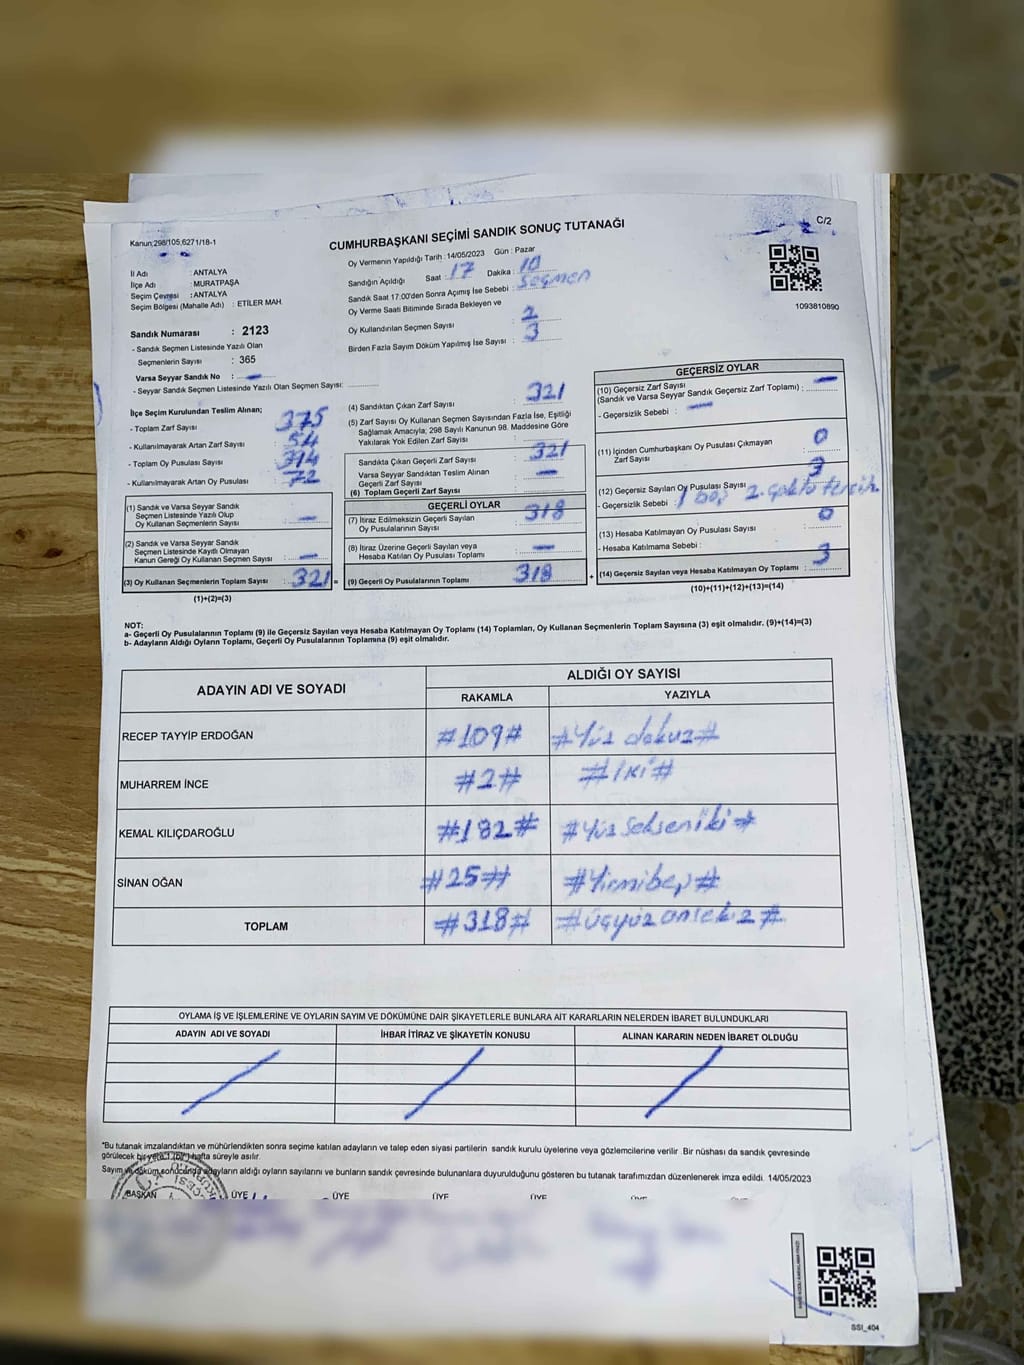 C/2
Kanun;298/105,6271/18-1
CUMHURBAŞKANI SEÇİMİ SANDIK SONUÇ TUTANAĞI
Oy Vermenin Yapıldığı Tarih : 14/05/2023 Gün : Pazar
İl Adı : ANTALYA
İlçe Adı : MURATPAŞA
Seçim Çevresi : ANTALYA
Seçim Bölgesi (Mahalle Adı) : ETİLER MAH.
Sandığın Açıldığı Saat : 17 Dakika : 10
Sandık Saat 17.00'den Sonra Açımış İse Sebebi : Seçmen
Oy Verme Saati Bitiminde Sırada Bekleyen ve
Oy Kullandırılan Seçmen Sayısı : 2
Birden Fazla Sayım Döküm Yapılmış İse Sayısı : 3
1093810890
Sandık Numarası : 2123
- Sandık Seçmen Listesinde Yazılı Olan
Seçmenlerin Sayısı : 365
Varsa Seyyar Sandık No : —
- Seyyar Sandık Seçmen Listesinde Yazılı Olan Seçmen Sayısı:
İlçe Seçim Kurulundan Teslim Alınan;
- Toplam Zarf Sayısı : 375
- Kullanılmayarak Artan Zarf Sayısı : 54
- Toplam Oy Pusulası Sayısı :
- Kullanılmayarak Artan Oy Pusulası : 72
(1) Sandık ve Varsa Seyyar Sandık
Seçmen Listesinde Yazılı Olup
Oy Kullanan Seçmenlerin Sayısı : —
(2) Sandık ve Varsa Seyyar Sandık
Seçmen Listesinde Kayıtlı Olmayan
Kanun Gereği Oy Kullanan Seçmen Sayısı : —
(3) Oy Kullanan Seçmenlerin Toplam Sayısı : 321 =
(1)+(2)=(3)
(4) Sandıktan Çıkan Zarf Sayısı : 321
(5) Zarf Sayısı Oy Kullanan Seçmen Sayısından Fazla İse, Eşitliği
Sağlamak Amacıyla; 298 Sayılı Kanunun 98. Maddesine Göre
Yakılarak Yok Edilen Zarf Sayısı :
Sandıkta Çıkan Geçerli Zarf Sayısı : 321
Varsa Seyyar Sandıktan Teslim Alınan
Geçerli Zarf Sayısı : —
(6) Toplam Geçerli Zarf Sayısı :
GEÇERLİ OYLAR
(7) İtiraz Edilmeksizin Geçerli Sayılan
Oy Pusulalarının Sayısı : 318
(8) İtiraz Üzerine Geçerli Sayılan veya
Hesaba Katılan Oy Pusulası Toplamı : —
(9) Geçerli Oy Pusulalarının Toplamı : 318 +
GEÇERSİZ OYLAR
(10) Geçersiz Zarf Sayısı
(Sandık ve Varsa Seyyar Sandık Geçersiz Zarf Toplamı) : —
- Geçersizlik Sebebi : —
(11) İçinden Cumhurbaşkanı Oy Pusulası Çıkmayan
Zarf Sayısı : 0
(12) Geçersiz Sayılan Oy Pusulası Sayısı : 3
- Geçersizlik Sebebi : 1 boş 2 çoklu tercih
(13) Hesaba Katılmayan Oy Pusulası Sayısı : 0
- Hesaba Katılmama Sebebi :
(14) Geçersiz Sayılan veya Hesaba Katılmayan Oy Toplamı : 3
(10)+(11)+(12)+(13)=(14)
NOT:
a- Geçerli Oy Pusulalarının Toplamı (9) ile Geçersiz Sayılan veya Hesaba Katılmayan Oy Toplamı (14) Toplamları, Oy Kullanan Seçmenlerin Toplam Sayısına (3) eşit olmalıdır. (9)+(14)=(3)
b- Adayların Aldığı Oyların Toplamı, Geçerli Oy Pusulalarının Toplamına (9) eşit olmalıdır.
ADAYIN ADI VE SOYADI ALDIĞI OY SAYISI
RAKAMLA YAZIYLA
RECEP TAYYİP ERDOĞAN #109# #Yüz dokuz#
MUHARREM İNCE #2# #İki#
KEMAL KILIÇDAROĞLU #182# #Yüz Seksen iki#
SİNAN OĞAN #25# #Yirmibeş#
TOPLAM #318# #Üçyüz onsekiz#
OYLAMA İŞ VE İŞLEMLERİNE VE OYLARIN SAYIM VE DÖKÜMÜNE DAİR ŞİKAYETLERLE BUNLARA AİT KARARLARIN NELERDEN İBARET BULUNDUKLARI
ADAYIN ADI VE SOYADI İHBAR İTİRAZ VE ŞİKAYETİN KONUSU ALINAN KARARIN NEDEN İBARET OLDUĞU
*Bu tutanak imzalandıktan ve mühürlendikten sonra seçime katılan adayların ve talep eden siyasi partilerin sandık kurulu üyelerine veya gözlemcilerine verilir. Bir nüshası da sandık çevresinde
görülecek bir yere 1 (bir) hafta süreyle asılır.
Sayım ve döküm sonucunda adayların aldığı oyların sayılarını ve bunların sandık çevresinde bulunanlara duyurulduğunu gösteren bu tutanak tarafımızdan düzenlenerek imza edildi. 14/05/2023
BAŞKAN ÜYE ÜYE ÜYE ÜYE ÜYE
SSI_404